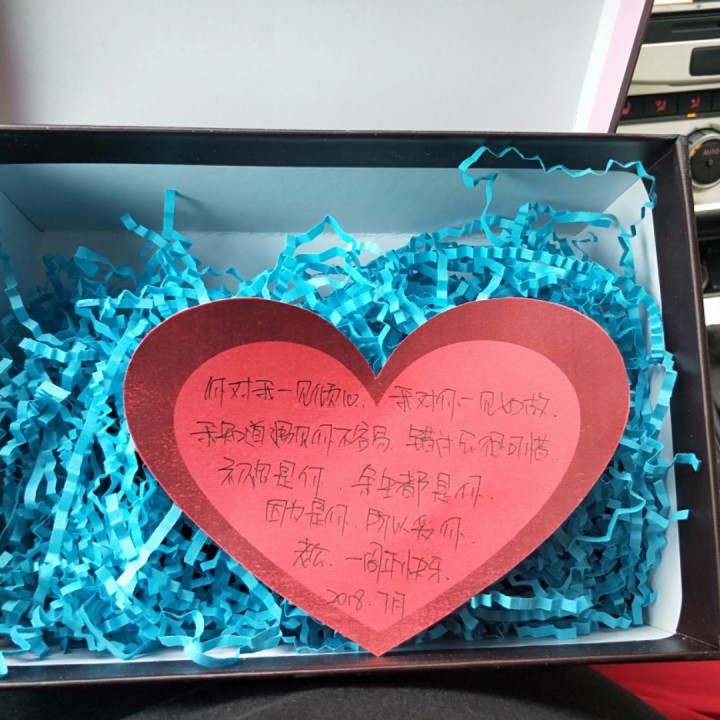 你对我一见倾心、我对你一见如故.
我知道遇见你不容易.错过了很可惜
初见是你.余生都是你.
因为是你.所以爱你.
老公.一周年快乐.
2018.7月
AUTO